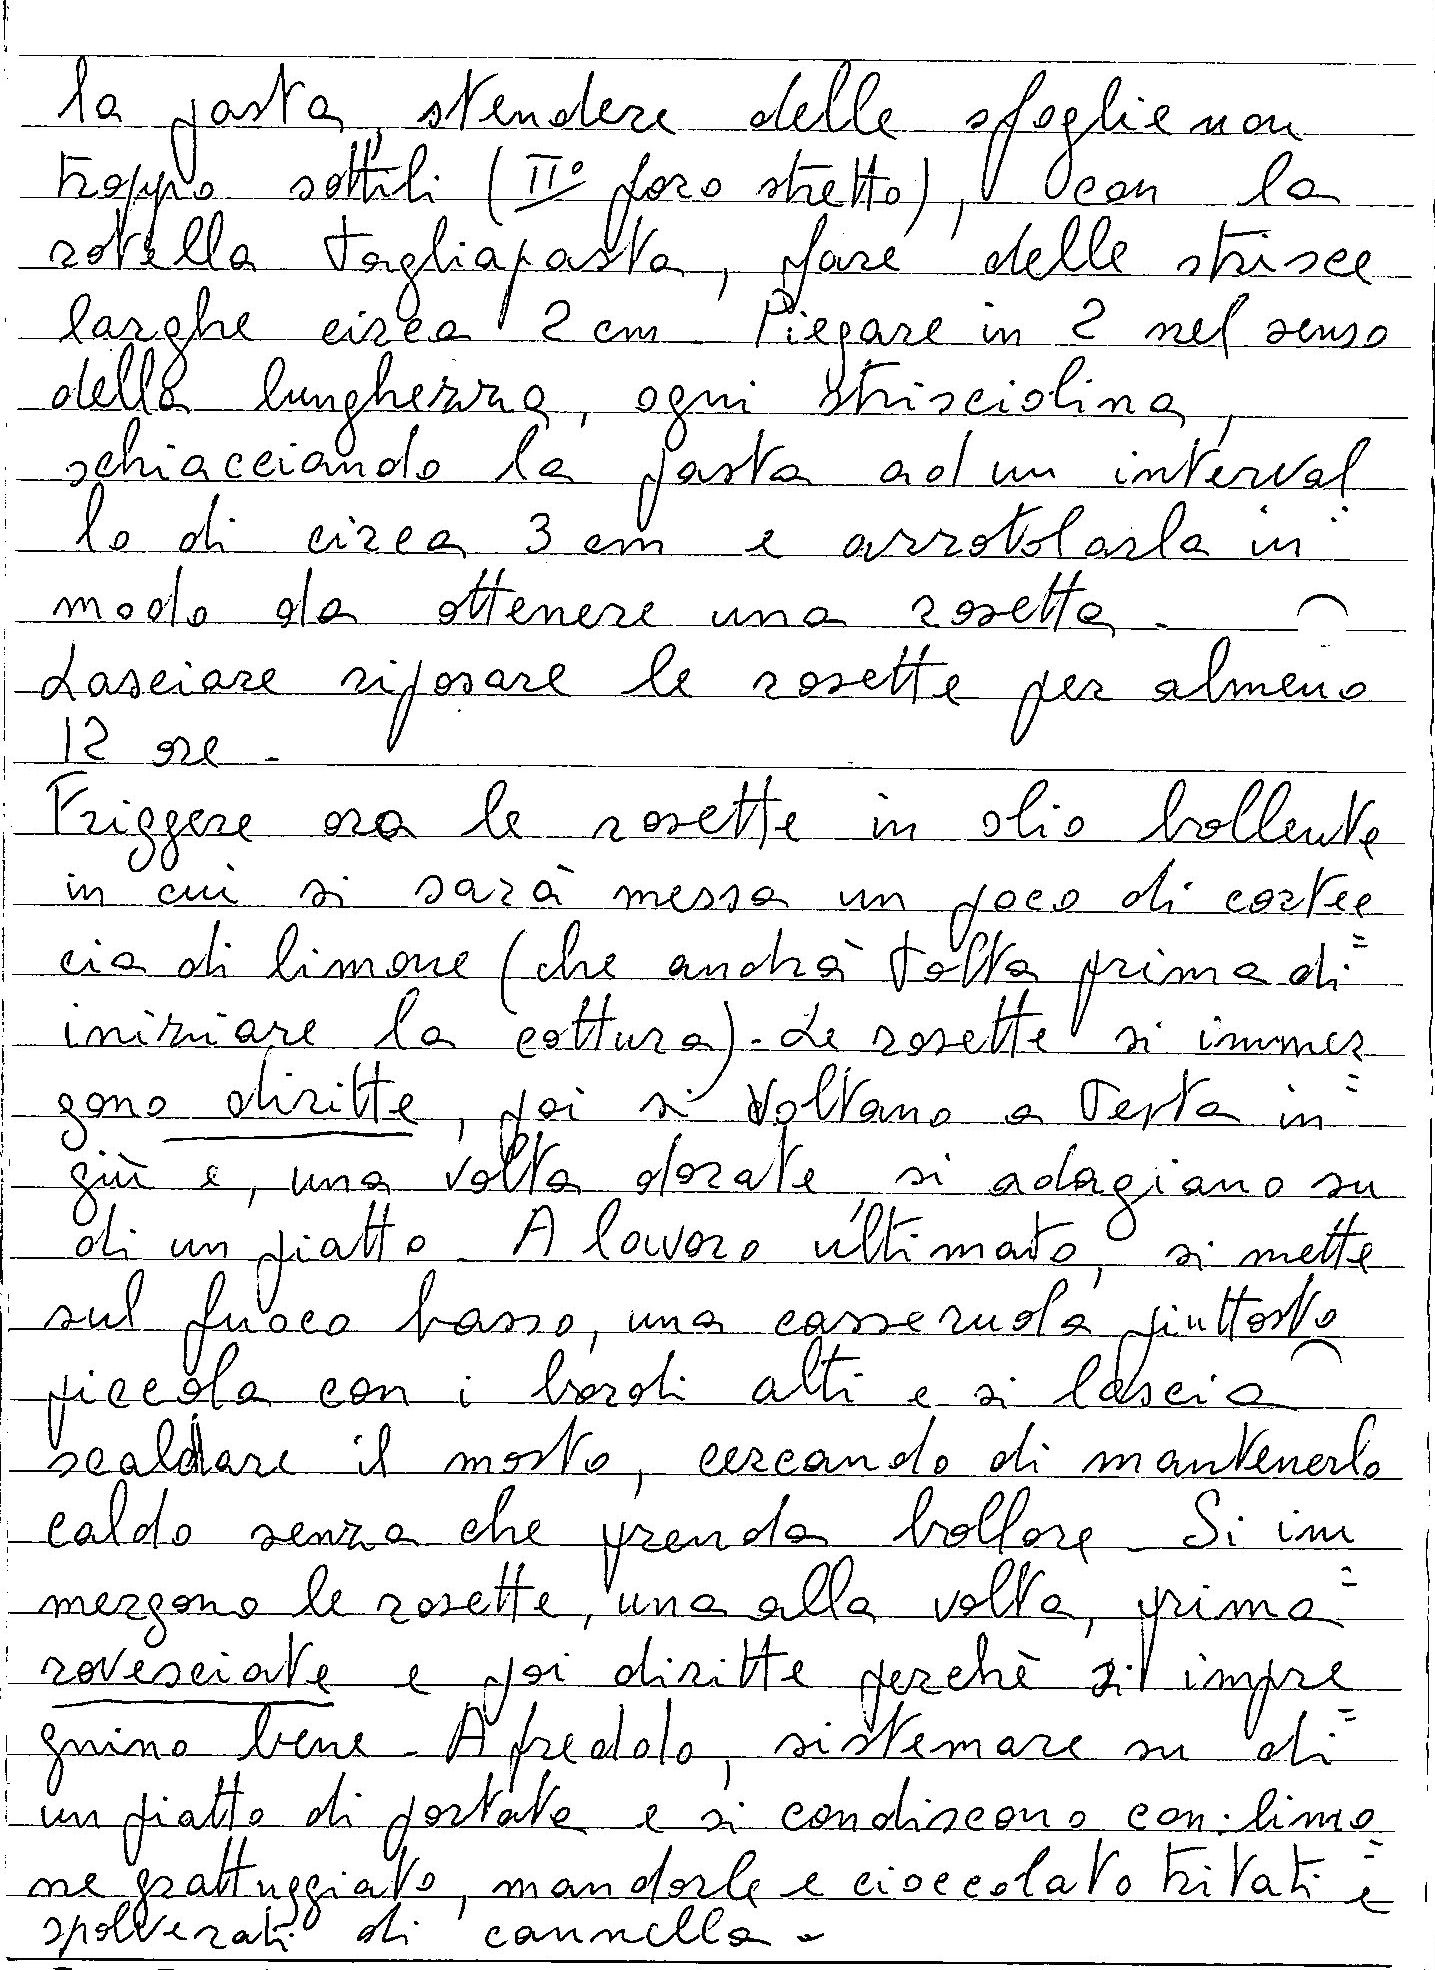 la pasta, stendere delle sfoglie non
troppo sottili (II° foro stretto), con la
rotella tagliapasta, fare delle strisce
larghe circa 2 cm. Piegare in 2 nel senso
della lunghezza, ogni strisciolina,
schiacciando la pasta ad un interval
lo di circa 3 cm e arrotolarla in
modo da ottenere una rosetta.
Lasciare riposare le rosette per almeno
12 ore.
Friggere ora le rosette in olio bollente
in cui si sarà messa un poco di cortec
cia di limone (che andrà tolta prima di
iniziare la cottura). Le rosette si immer=
gono diritte, poi si voltano a testa in
giù e, una volta dorate, si adagiano su
di un piatto. A lavoro ultimato, si mette
sul fuoco basso, una casseruola piuttosto
piccola con i bordi alti e si lascia
scaldare il mosto, cercando di mantenerlo
caldo senza che prenda bollore. Si im=
mergono le rosette, una alla volta, prima
rovesciate e poi diritte perchè si impre=
gnino bene. A freddo, sistemare su di
un piatto di portata e si condiscono con: limo=
ne grattuggiato, mandorle e cioccolato tritati e
spolverati di cannella.